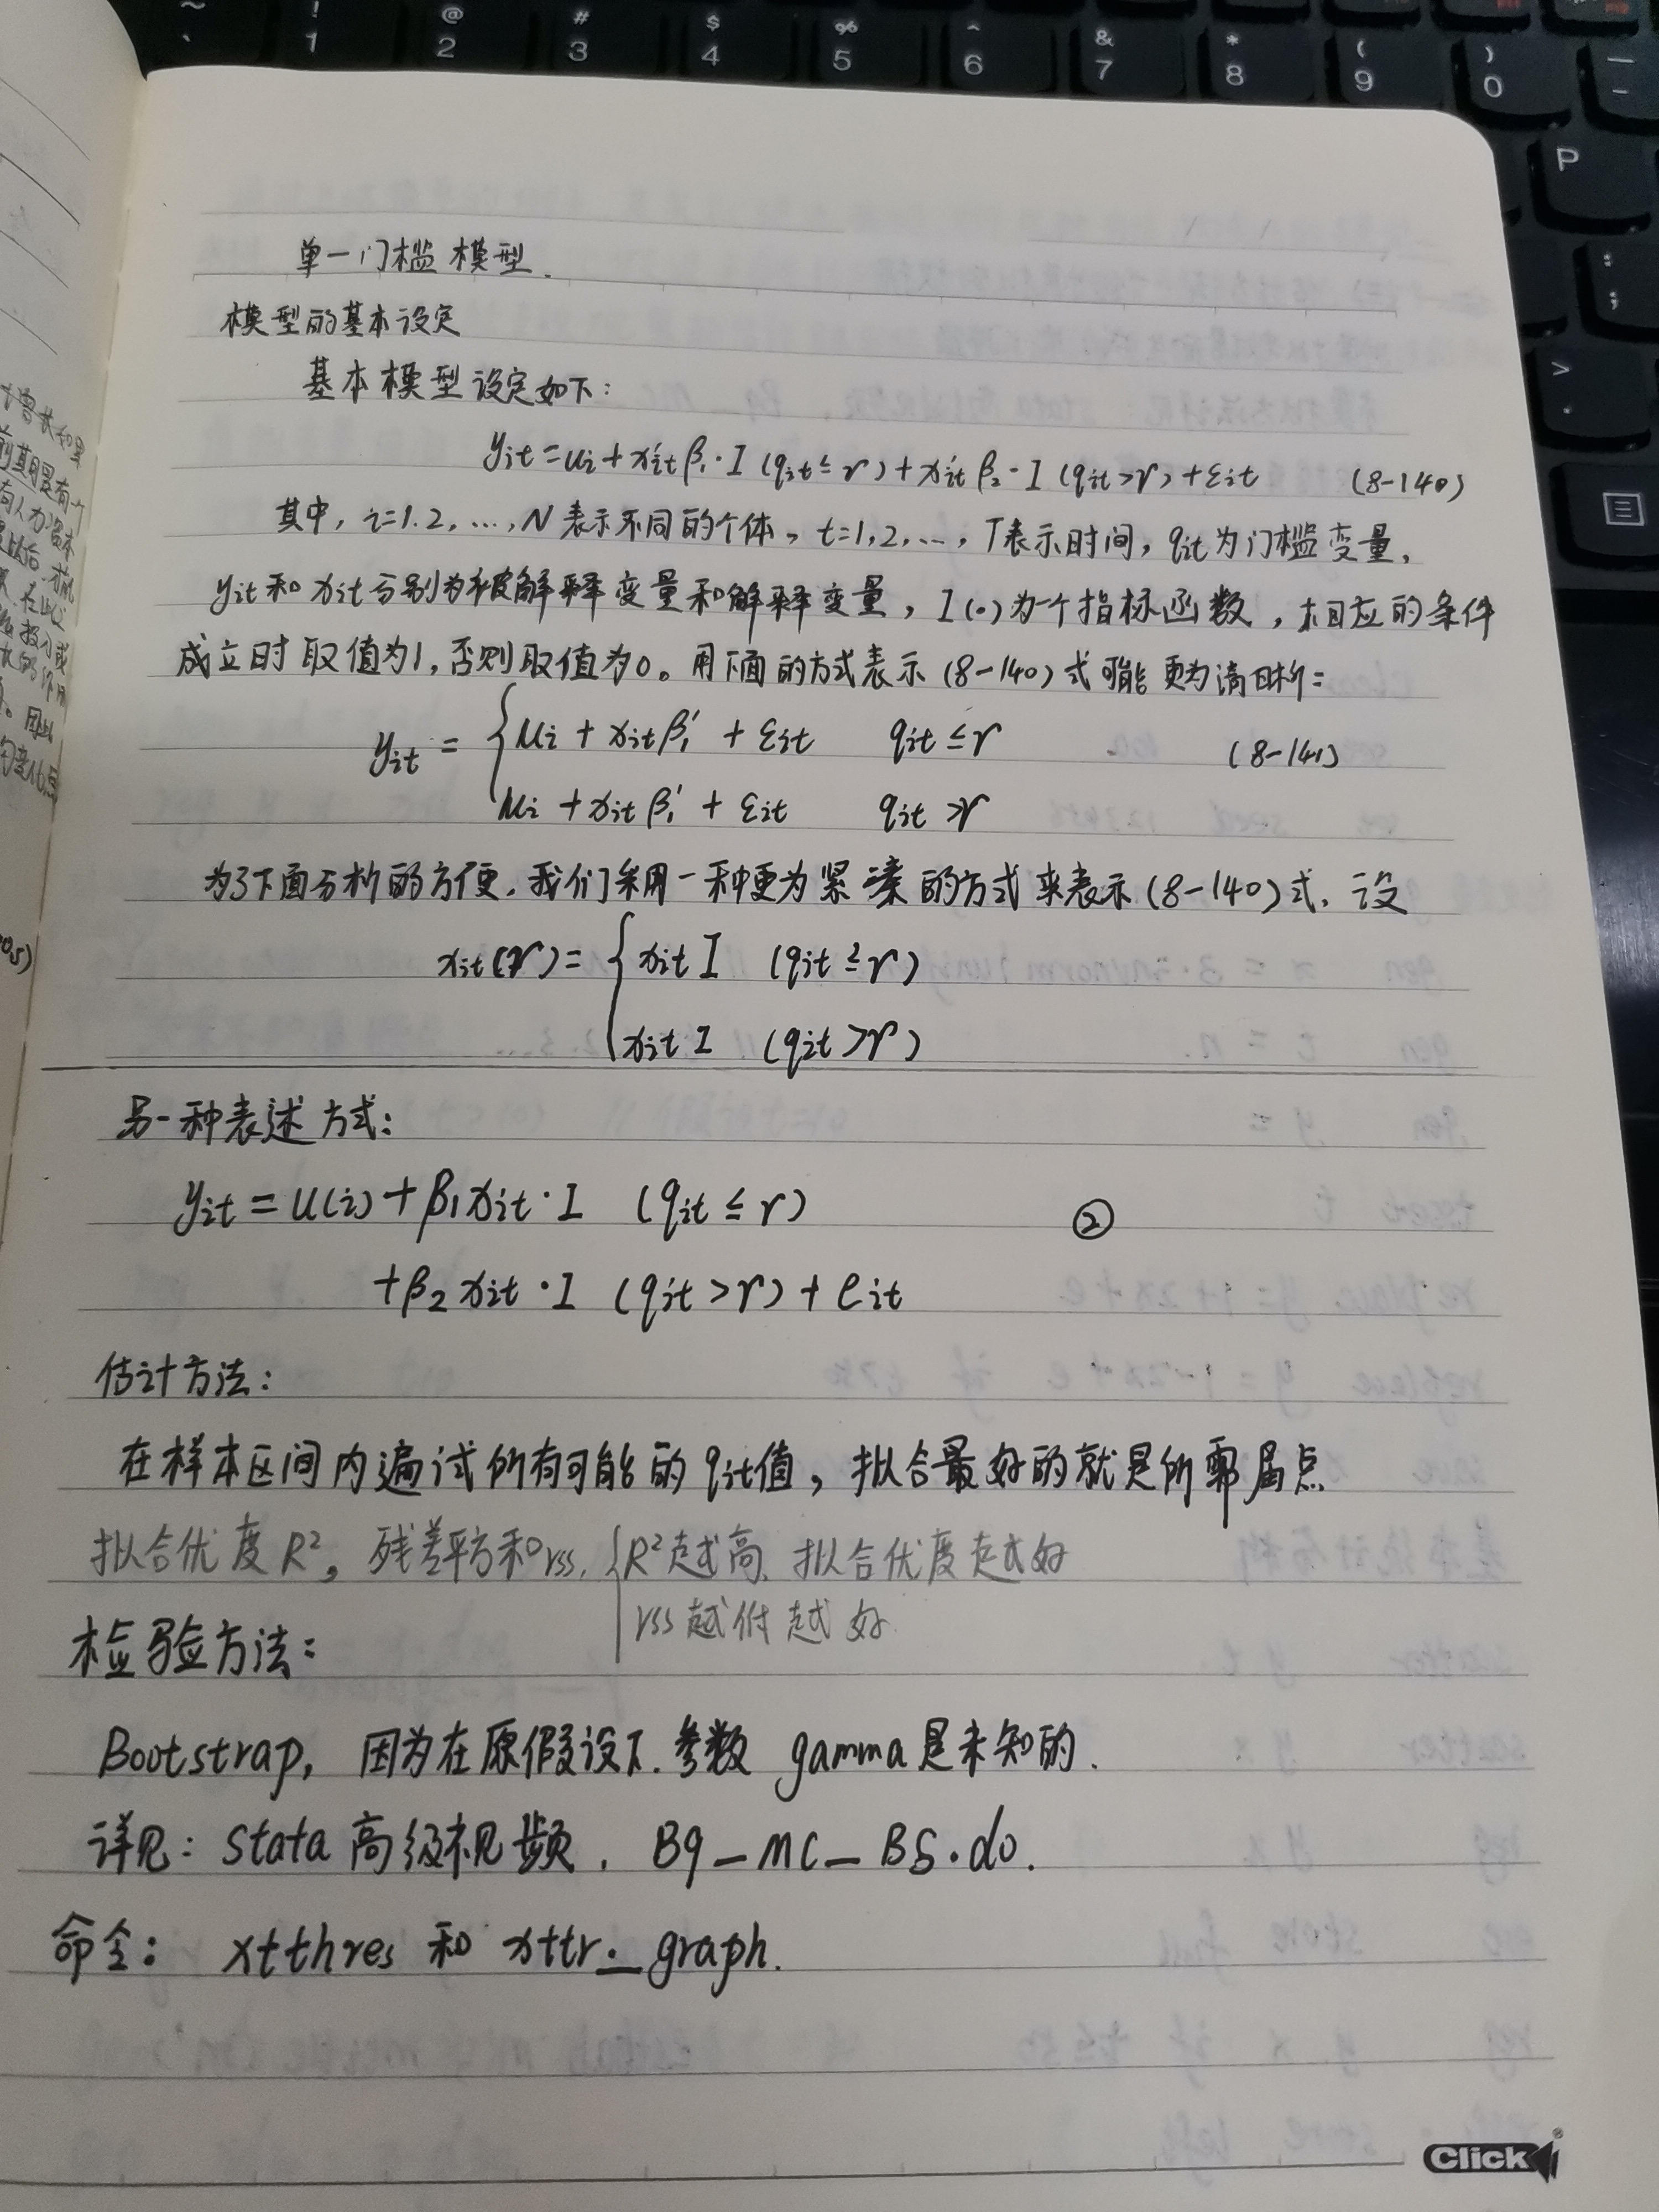 ~ ` ! 1 @ 2 # 3 $ 4 % 5 ^ 6 & 7 * 8 ( 9 ) 0 — -
P
: ;
> .
单一门槛模型.
模型的基本设定
基本模型设定如下:
yit=ui+x'itβ1·I(qit≤γ)+x'itβ2·I(qit>γ)+εit (8-140)
其中, i=1.2, …, N表示不同的个体, t=1,2,…, T表示时间, qit为门槛变量,
yit和xit分别为被解释变量和解释变量, I(·)为一个指标函数, 相应的条件
成立时取值为1, 否则取值为0。用下面的方式表示(8-140)式可能更为清晰:
yit = { μi + xitβ1' + εit qit≤γ (8-141)
μi + xitβ1' + εit qit>γ
为了下面分析的方便, 我们采用一种更为紧凑的方式来表示(8-140)式, 设
xit(γ)= { xit I (qit≤γ)
xit I (qit>γ)
另一种表述方式:
yit = u(i)+β1xit·I (qit≤γ) ②
+β2xit·I (qit>γ)+eit
估计方法:
在样本区间内遍试所有可能的qit值, 拟合最好的就是所需届点
拟合优度R², 残差平方和rss. { R²越高, 拟合优度越好
rss越 越好
检验方法:
Bootstrap, 因为在原假设下.参数 gamma是未知的.
详见: stata高级视频. B9_MC_BS.do.
命令: xtthres 和 xttr_graph.
Click